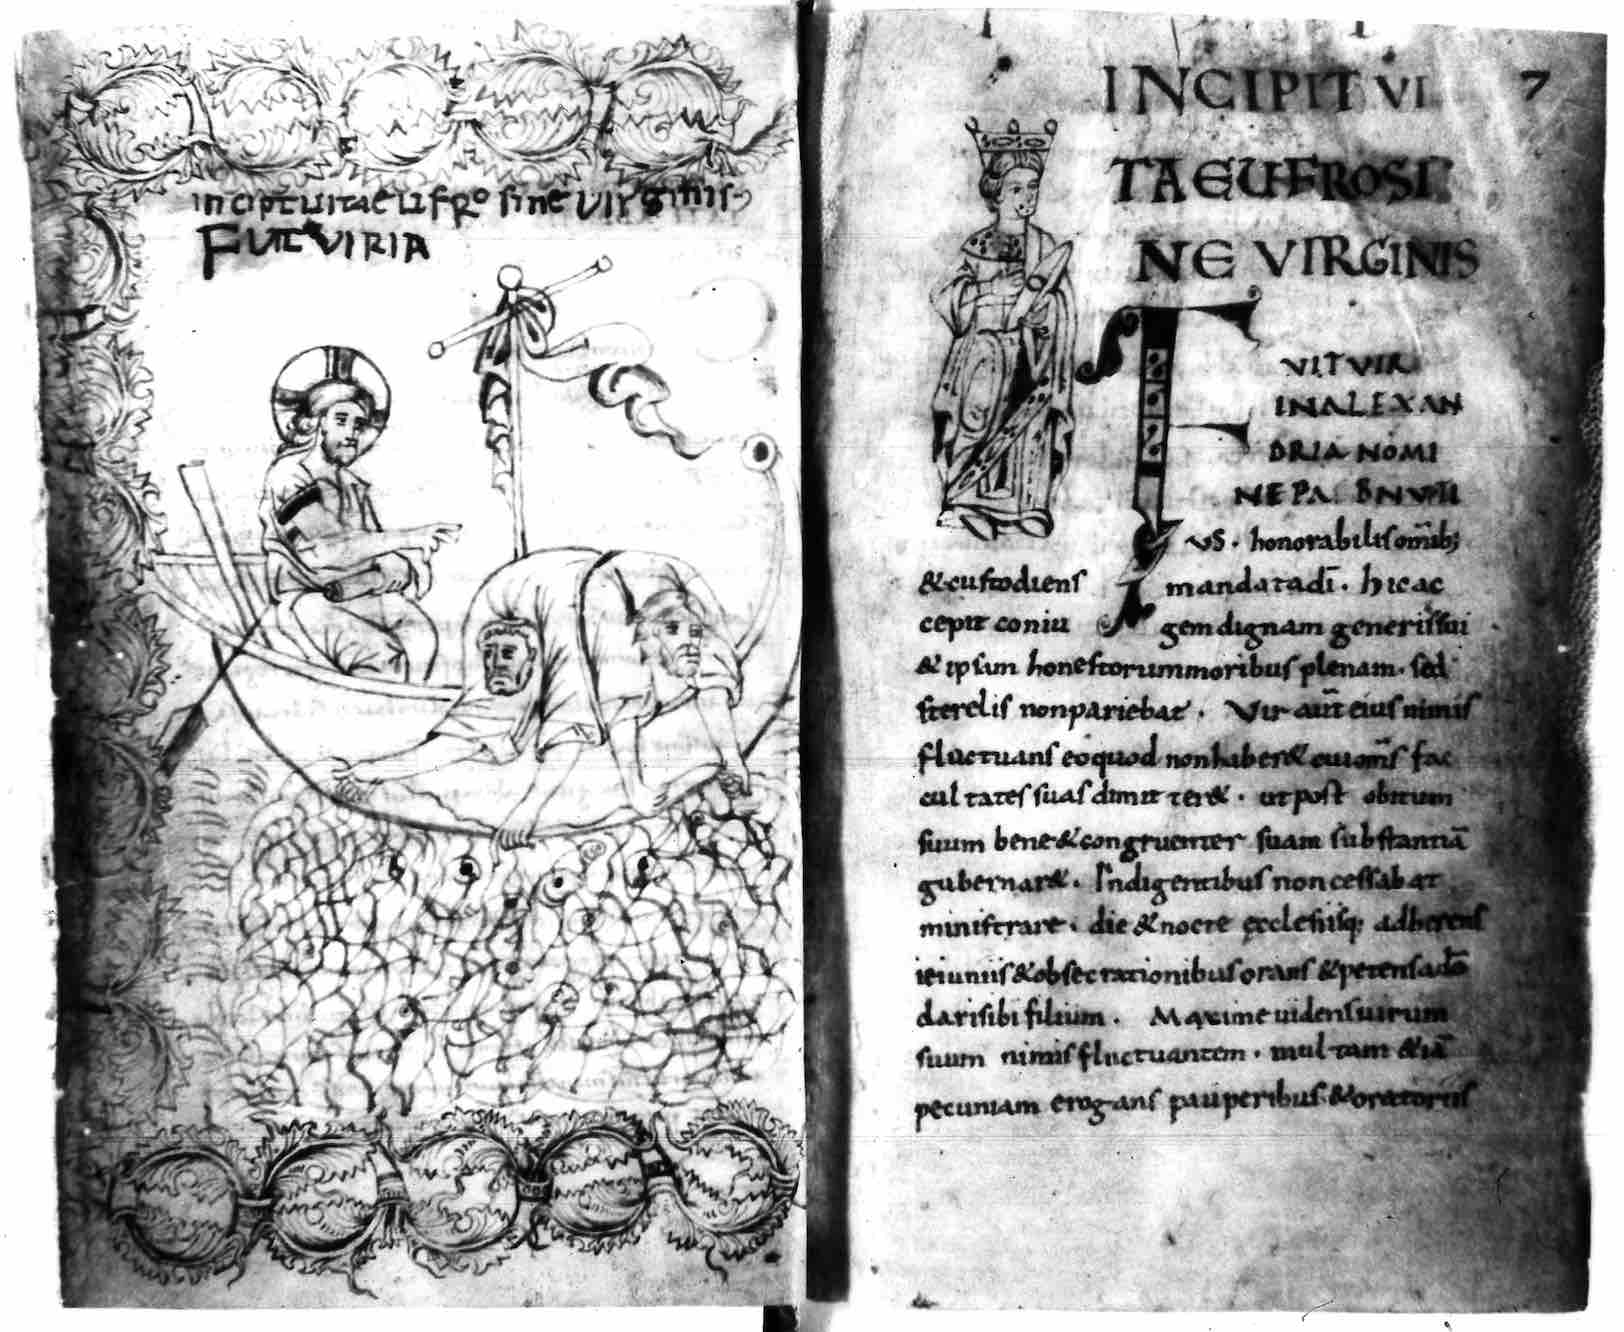 incipit uita eufrosine uirginis
FUIT VIR IA
INCIPIT VI
7
TA EUFROSI
NE VIRGINIS
FVIT VIR
IN ALEXAN
DRIA NOMI
NE PA BNVTI
VS · honorabilis omīb;
& custodiens mandata dī · hic ac
cepit coniu gem dignam generis sui
& ipsim honestorum moribus plenam · sed
sterelis non pariebat · Vir aūt eius nimis
fluctuans eo quod non haber& cui om̄s fac
cultates suas dimitter& · ut post obitum
suum bene & congruenter suam substantiā
gubernar& · Indigentibus non cessabat
ministrare · die & nocte ecclesiisq; adherens
ieiuniis & obsecrationibus orans & petens a dō
dari sibi filium · Maxime uidens uirum
suum nimis fluctuantem · multam & iā
pecuniam erogans pauperibus & oratoriis